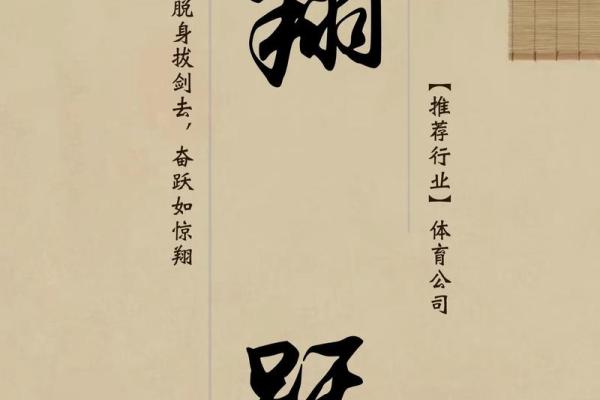 【推荐行业】体育公司
翔
跃
脱身拔剑去，奋跃如惊翔